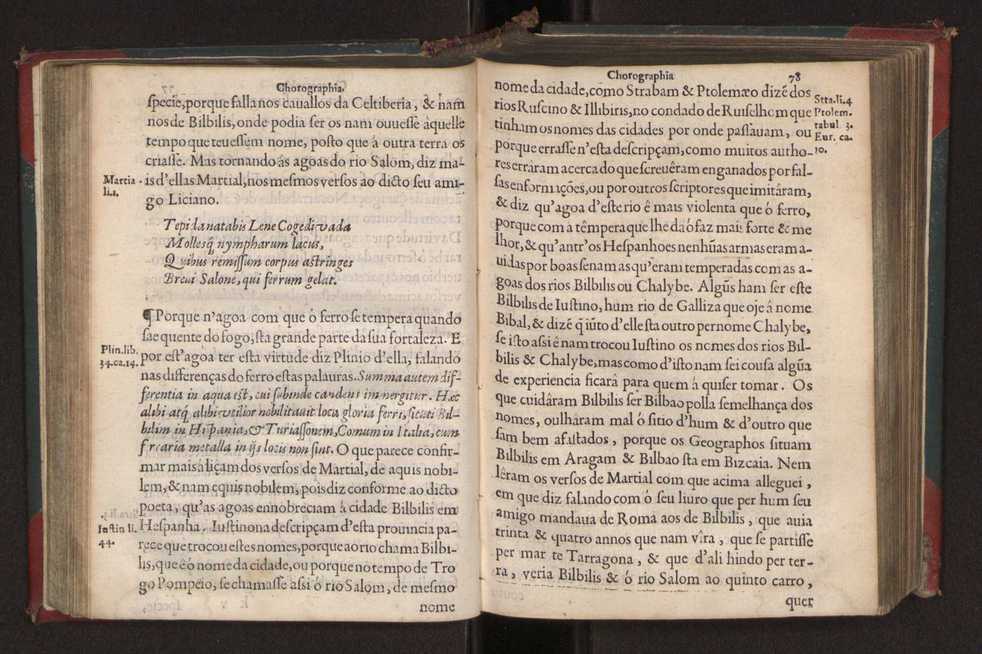 Chorographia.
specie, porque falla nos cauallos da Celtiberia, & nam
nos de Bilbilis, onde podia ser os nam ouuesse àquelle
tempo que teuessem nome, posto que à outra terra os
criasse. Mas tornando ás agoas do rio Salom, diz ma-
Martia
li.1.
is d'ellas Martial, nos mesmos versos ao dicto seu ami-
go Liciano.
Tepida natabis Lene Cogedi vada
Mollesq́ nympharum lacus,
Quibus remissum corpus astringes
Breui Salone, qui ferrum gelat.
¶ Porque n'agoa com que ò ferro se tempera quando
sae quente do fogo, sta grande parte da sua fortaleza. E
Plin. lib.
34. ca. 14.
por est'agoa ter esta virtude diz Plinio d'ella, falando
nas differenças do ferro estas palauras. Summa autem dif-
ferentia in aqua est, cui subinde candens immergitur. Hæc
alibi atq́ alibi vtilior nobilitauit loca gloria ferri, sicuti Bil-
bilim in Hispania, & Turiassonem, Comum in Italia, cum
ferraria metalla in ijs locis non sint. O que parece confir-
mar mais à liçam dos versos de Martial, de aquis nobi-
lem, & nam equis nobilem, pois diz conforme ao dicto
poeta, qu'as agoas ennobreciam à cidade Bilbilis em
Iustin li.
44.
Hespanha. Iustino na descripçam d'esta prouincia pa-
rece que trocou estes nomes, porque ao rio chama Bilbi-
lis, que é ò nome da cidade, ou porque no tempo de Tro
go Pompeio, se chamasse assi ó rio Salom, de mesmo
nome
Chorographia 78
nome da cidade, como Strabam & Ptolemæo dizẽ dos
Stra. li. 4
Ptolem.
tabul 3.
Eur. ca.
10.
rios Ruscino & Illibiris, no condado de Ruiselhom que
tinham os nomes das cidades por onde passauam, ou
porque errasse n'esta descripçam, como muitos autho-
res erráram acerca do que screuêram enganados por fal-
sas enformações, ou por outros scriptores que imitáram,
& diz qu'agoa d'este rio é mais violenta que ò ferro,
porque com à têmpera que lhe da ò faz mais forte & me
lhor, & qu'antr'os Hespanhoes nenhũas armas eram a-
uidas por boas se nam as qu'eram temperadas com as a-
goas dos rios Bilbilis ou Chalybe. Algũs ham ser este
Bilbilis de Iustino, hum rio de Galliza que oje á nome
Bibal, & dizẽ q̃ iũto d'elle sta outro per nome Chalybe,
se isto assi é nam trocou Iustino os nomes dos rios Bil-
bilis & Chalybe, mas como d'isto nam sei cousa algũa
de experiencia ficará para quem à quiser tomar. Os
que cuidâram Bilbilis ser Bilbao polla semelhança dos
nomes, oulháram mal ó sitio d'hum & d'outro que
sam bem afastados, porque os Geographos situam
Bilbilis em Aragam & Bilbao sta em Bizcaia. Nem
lêram os versos de Martial com que acima alleguei,
em que diz falando com ó seu liuro que per hum seu
amigo mandaua de Roma aos de Bilbilis, que auia
trinta & quatro annos que nam vira, que se partisse
per mar te Tarragona, & que d'ali hindo per ter-
ra, veria Bilbilis & ó rio Salom ao quinto carro,
quer